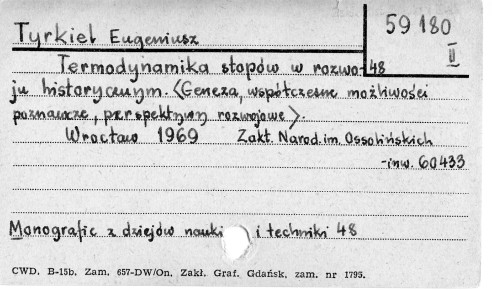 59 180
II
Tyrkiel Eugeniusz
Termodynamika stopów w rozwo-48
ju historycznym. (Geneza, współczesne możliwości
poznawcze, perspektywy rozwojowe).
Wrocław 1969 Zakł. Narod. im. Ossolińskich
-inw. 60433
Monografie z dziejów nauki i techniki 48
CWD. B-15b. Zam. 657-DW/On. Zakł. Graf. Gdańsk, zam. nr 1795.